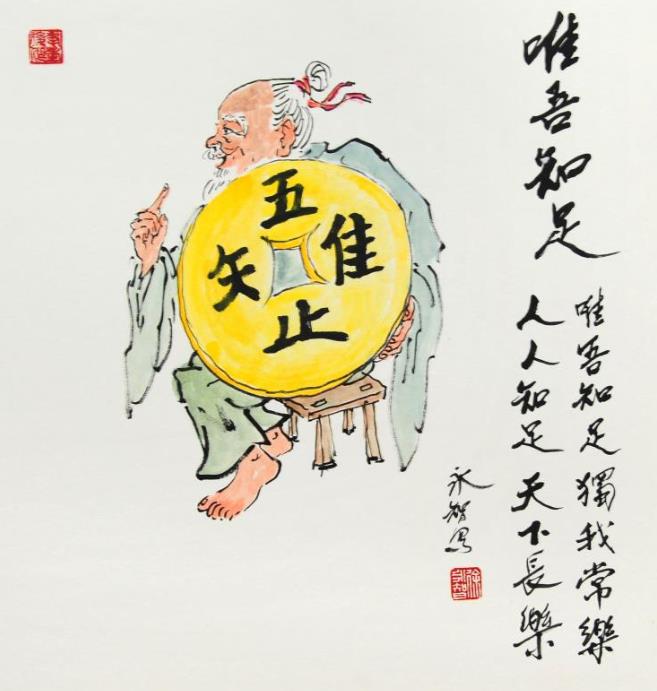 唯吾知足
唯吾知足獨我常樂
人人知足天下長樂
永智写
徐永智
五
隹
止
矢